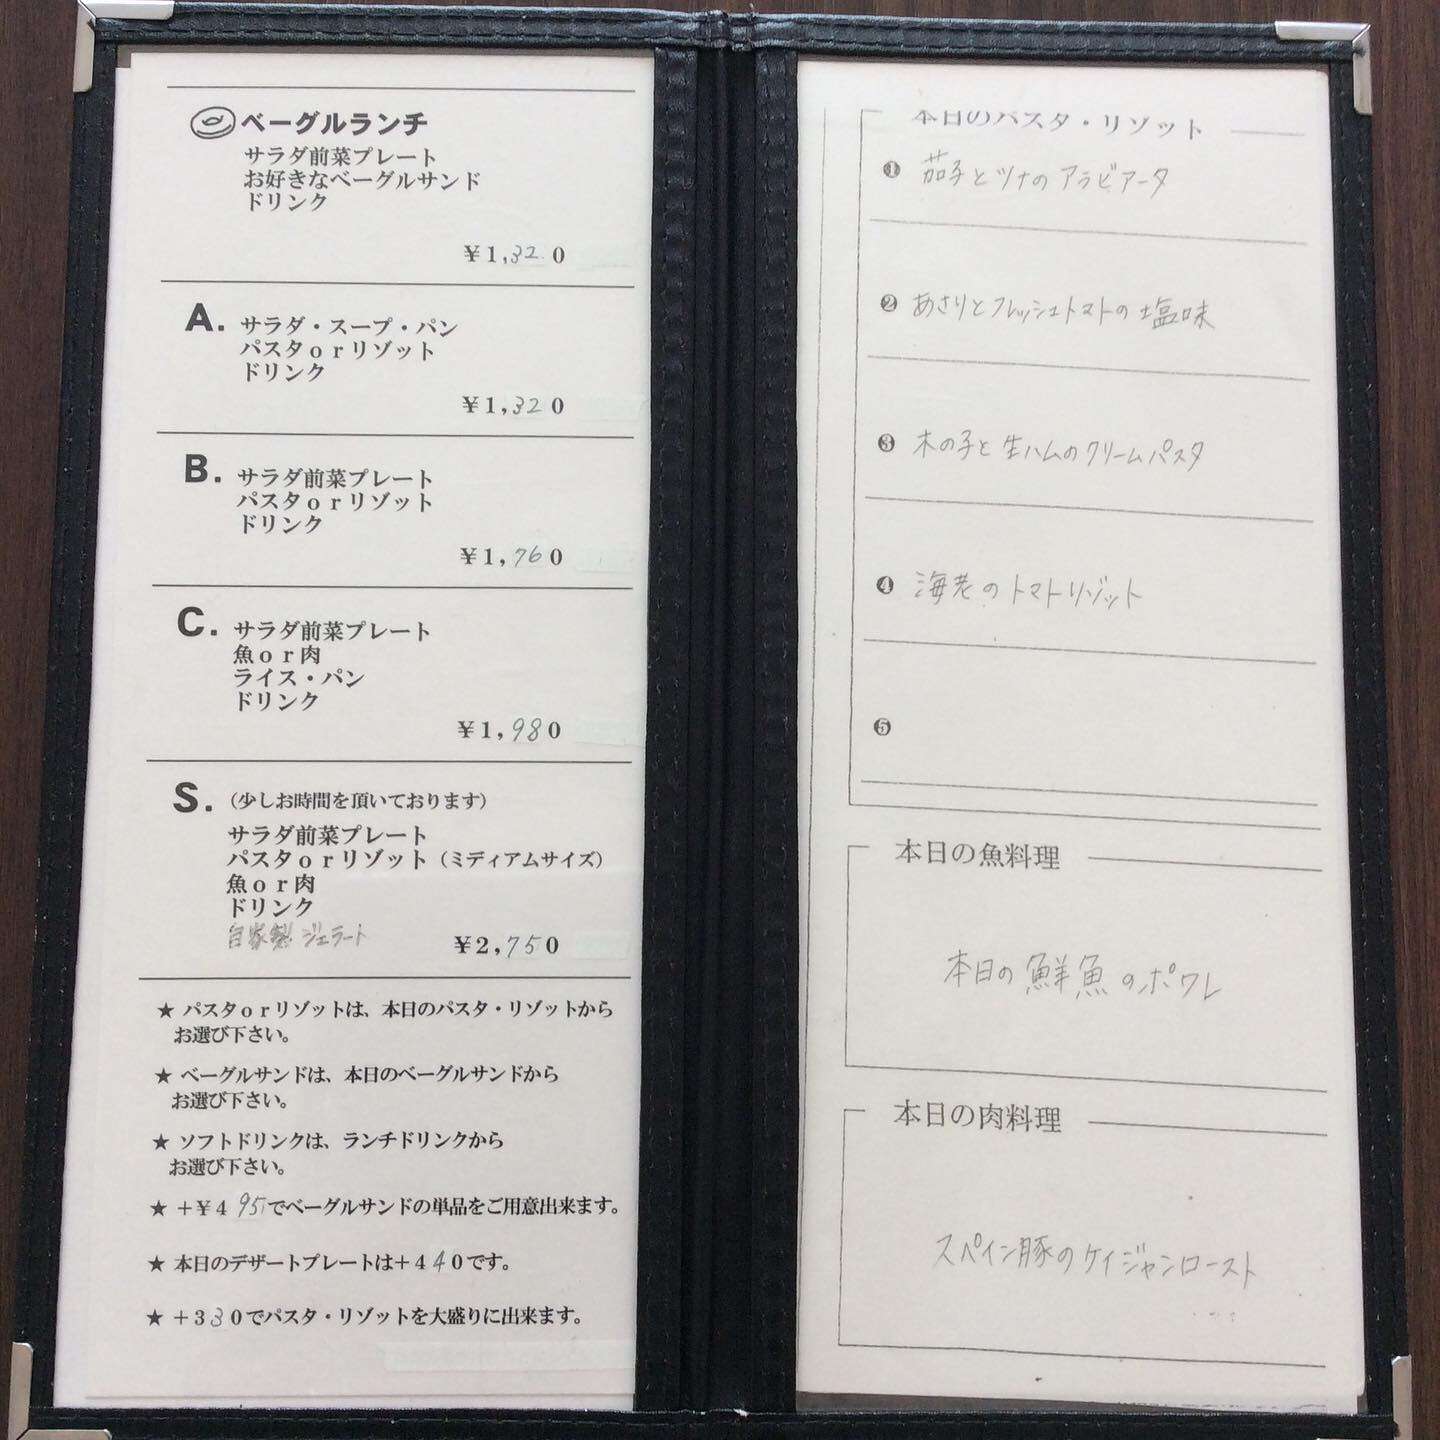 ベーグルランチ
サラダ前菜プレート
お好きなベーグルサンド
ドリンク
¥1,320
A. サラダ・スープ・パン
パスタorリゾット
ドリンク
¥1,320
B. サラダ前菜プレート
パスタorリゾット
ドリンク
¥1,760
C. サラダ前菜プレート
魚or肉
ライス・パン
ドリンク
¥1,980
S. (少しお時間を頂いております)
サラダ前菜プレート
パスタorリゾット(ミディアムサイズ)
魚or肉
ドリンク
自家製 ジェラート
¥2,750
★ パスタorリゾットは、本日のパスタ・リゾットから
お選び下さい。
★ ベーグルサンドは、本日のベーグルサンドから
お選び下さい。
★ ソフトドリンクは、ランチドリンクから
お選び下さい。
★ +¥495でベーグルサンドの単品をご用意出来ます。
★ 本日のデザートプレートは+440です。
★ +330でパスタ・リゾットを大盛りに出来ます。
本日のパスタ・リゾット
❶ 茄子とツナのアラビアータ
❷ あさりとフレッシュトマトの塩味
❸ 木の子と生ハムのクリームパスタ
❹ 海老のトマトリゾット
❺
本日の魚料理
本日の鮮魚のポワレ
本日の肉料理
スペイン豚のケイジャンロースト